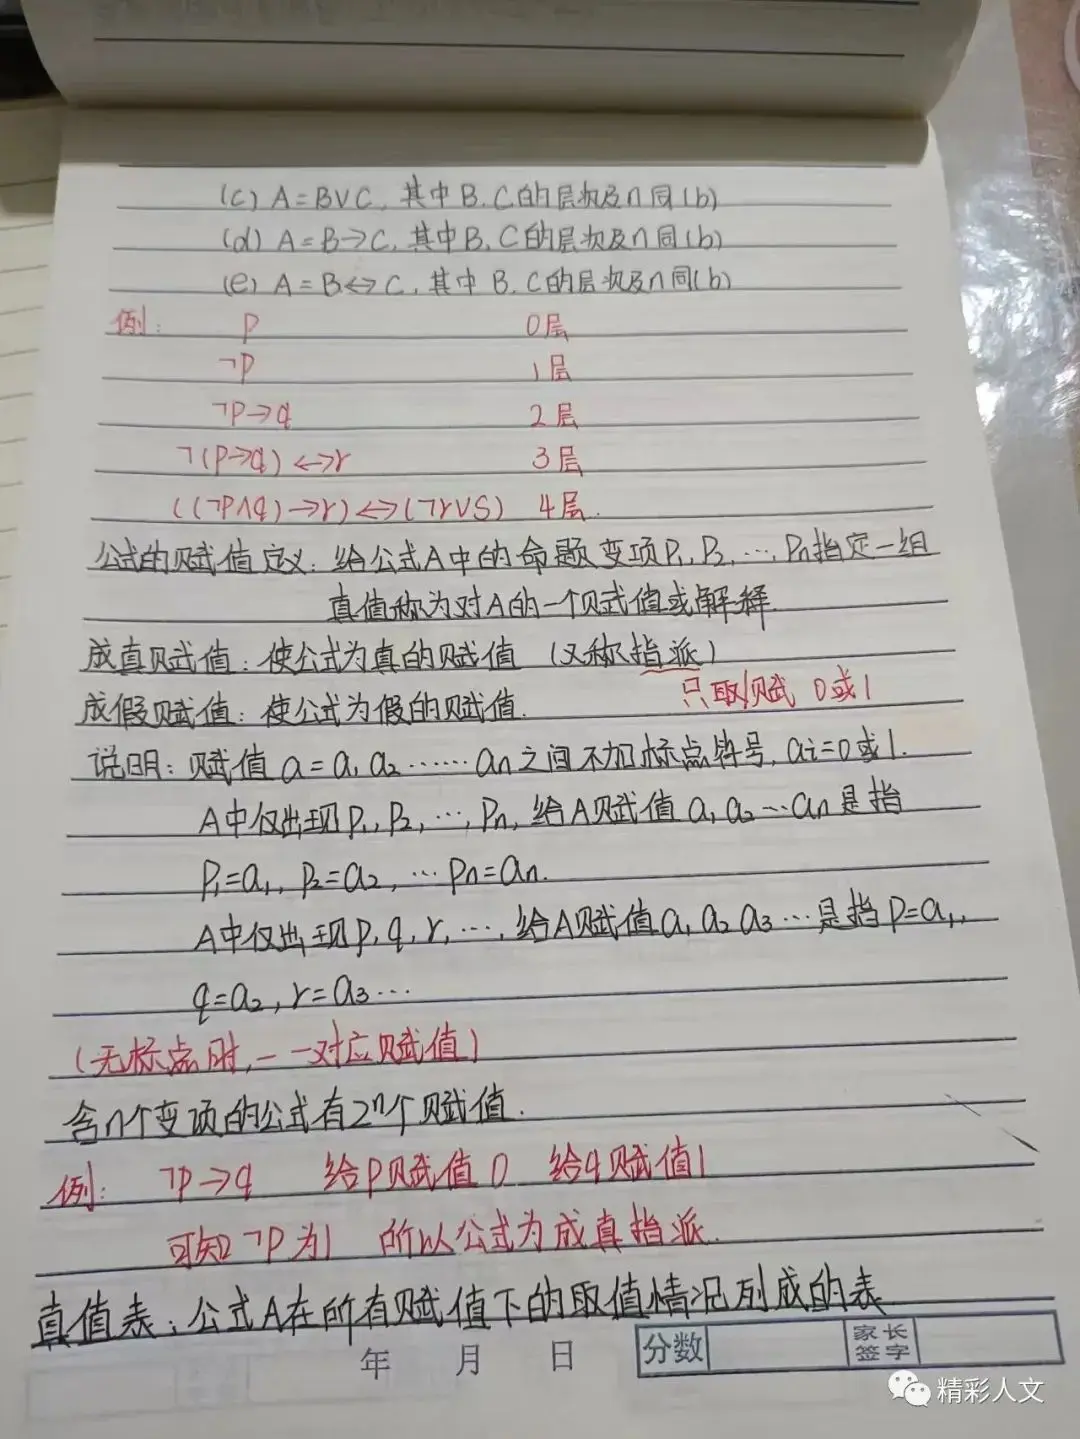 (c) A=B∨C, 其中B.C的层次及n同(b)
(d) A=B→C, 其中B,C的层次及n同(b)
(e) A=B↔C, 其中B,C的层次及n同(b)
例: p 0层
¬p 1层
¬p→q 2层
¬(p→q)↔r 3层
((¬p∧q)→r)↔(¬r∨s) 4层.
公式的赋值定义: 给公式A中的命题变项p₁,p₂,…,pₙ指定一组
真值称为对A的一个赋值或解释.
成真赋值: 使公式为真的赋值 (又称指派)
只取/赋 0或1
成假赋值: 使公式为假的赋值.
说明: 赋值a=a₁a₂……aₙ之间不加标点符号, aᵢ=0或1.
A中仅出现p₁,p₂,…,pₙ, 给A赋值a₁a₂…aₙ是指
p₁=a₁, p₂=a₂, …pₙ=aₙ.
A中仅出现p,q,r,…, 给A赋值a₁a₂a₃…是指p=a₁,
q=a₂, r=a₃…
(无标点时, 一一对应赋值)
含n个变项的公式有2ⁿ个赋值.
例: ¬p→q 给p赋值0 给q赋值1
可知¬p为1 所以公式为成真指派.
真值表: 公式A在所有赋值下的取值情况列成的表
年 月 日 分数 家长签字
精彩人文